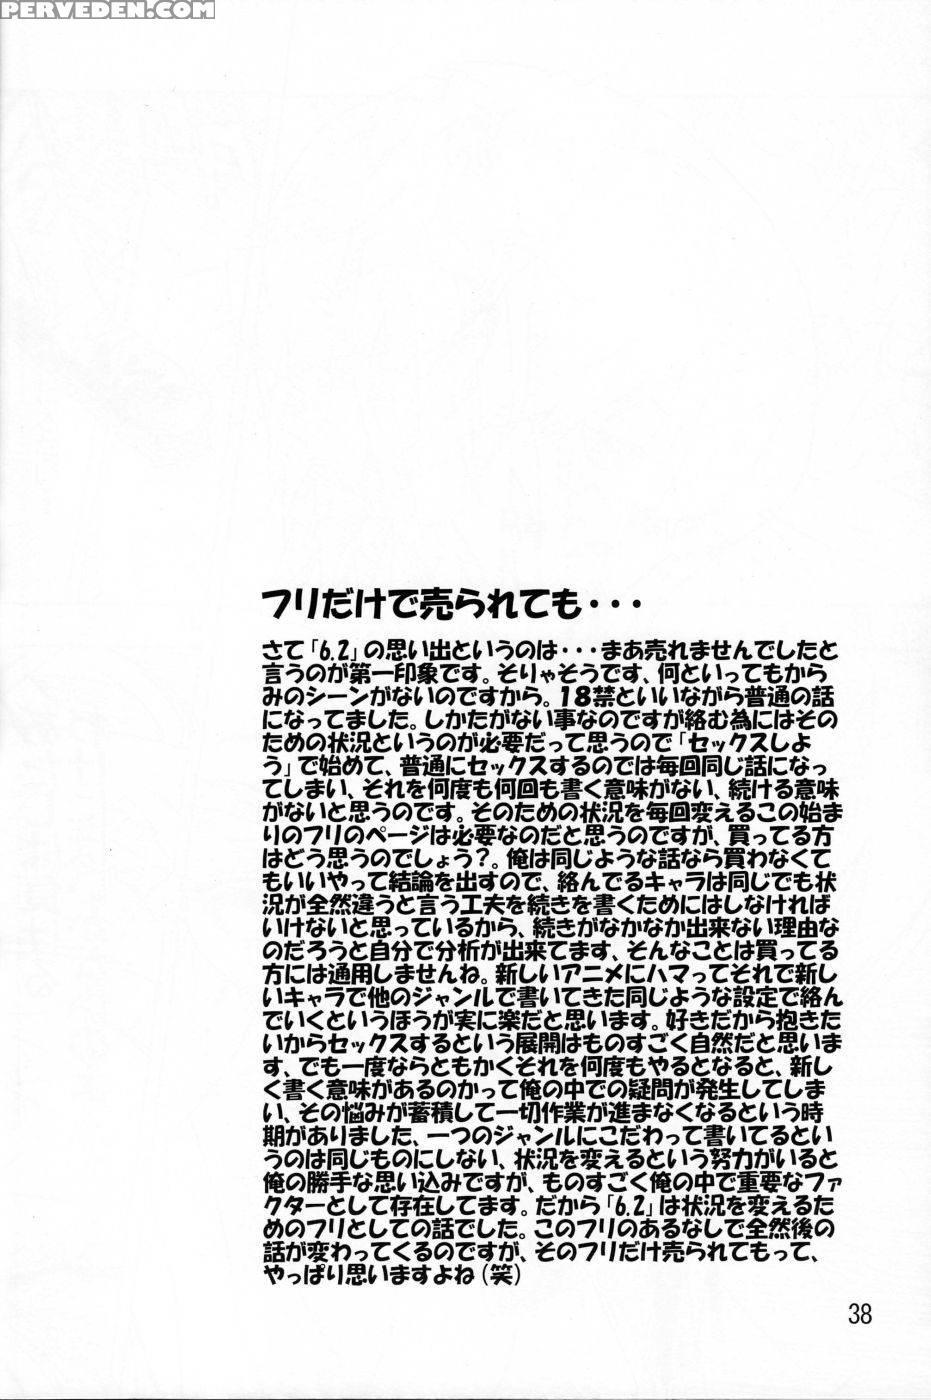 PERVEDEN.COM
フリだけで売られても・・・
さて「6.2」の思い出というのは・・・まあ売れませんでしたと
言うのが第一印象です。そりゃそうです、何といってもから
みのシーンがないのですから。18禁といいながら普通の話
になってました。しかたがない事なのですが絡む為にはその
ための状況というのが必要だって思うので「セックスしよ
う」で始めて、普通にセックスするのでは毎回同じ話になっ
てしまい、それを何度も何回も書く意味がない、続ける意味
がないと思うのです。そのための状況を毎回変えるこの始ま
りのフリのページは必要なのだと思うのですが、買ってる方
はどう思うのでしょう？。俺は同じような話なら買わなくて
もいいやって結論を出すので、絡んでるキャラは同じでも状
況が全然違うと言う工夫を続きを書くためにはしなければ
いけないと思っているから、続きがなかなか出来ない理由な
のだろうと自分で分析が出来てます、そんなことは買ってる
方には通用しませんね。新しいアニメにハマってそれで新し
いキャラで他のジャンルで書いてきた同じような設定で絡ん
でいくというほうが実に楽だと思います。好きだから抱きた
いからセックスするという展開はものすごく自然だと思いま
す、でも一度ならともかくそれを何度もやるとなると、新し
く書く意味があるのかって俺の中での疑問が発生してしま
い、その悩みが蓄積して一切作業が進まなくなるという時
期がありました、一つのジャンルにこだわって書いてるとい
うのは同じものにしない、状況を変えるという努力がいると
俺の勝手な思い込みですが、ものすごく俺の中で重要なファ
クターとして存在してます。だから「6.2」は状況を変えるた
めのフリとしての話でした。このフリのあるなしで全然後の
話が変わってくるのですが、そのフリだけ売られてもって、
やっぱり思いますよね（笑）
38